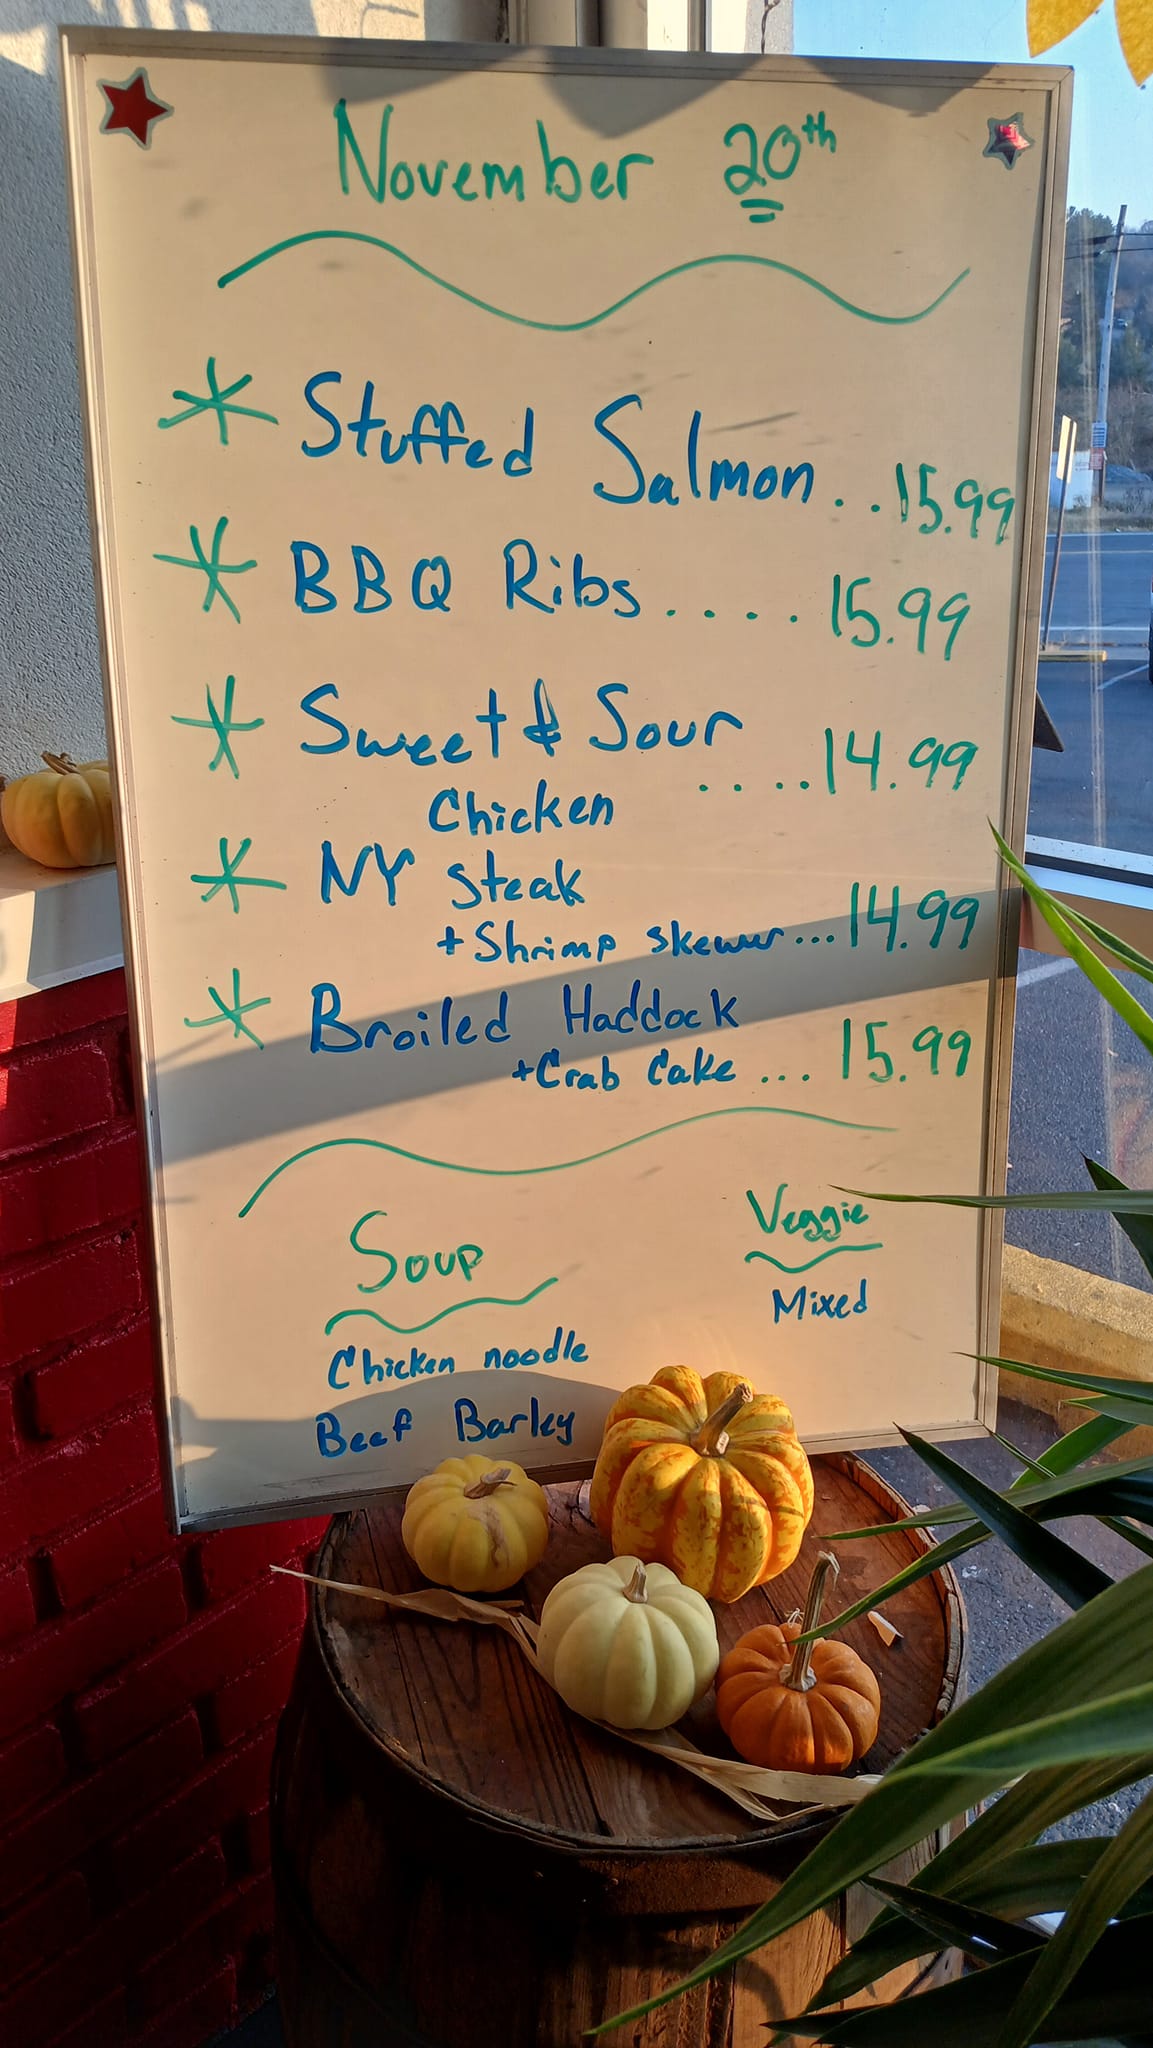 November 20th
* Stuffed Salmon..15.99
* BBQ Ribs.....15.99
* Sweet & Sour
Chicken ....14.99
* NY Steak
+ Shrimp skewur...14.99
* Broiled Haddock
+Crab Cake ...15.99
Soup
Chicken noodle
Beef Barley
Veggie
Mixed